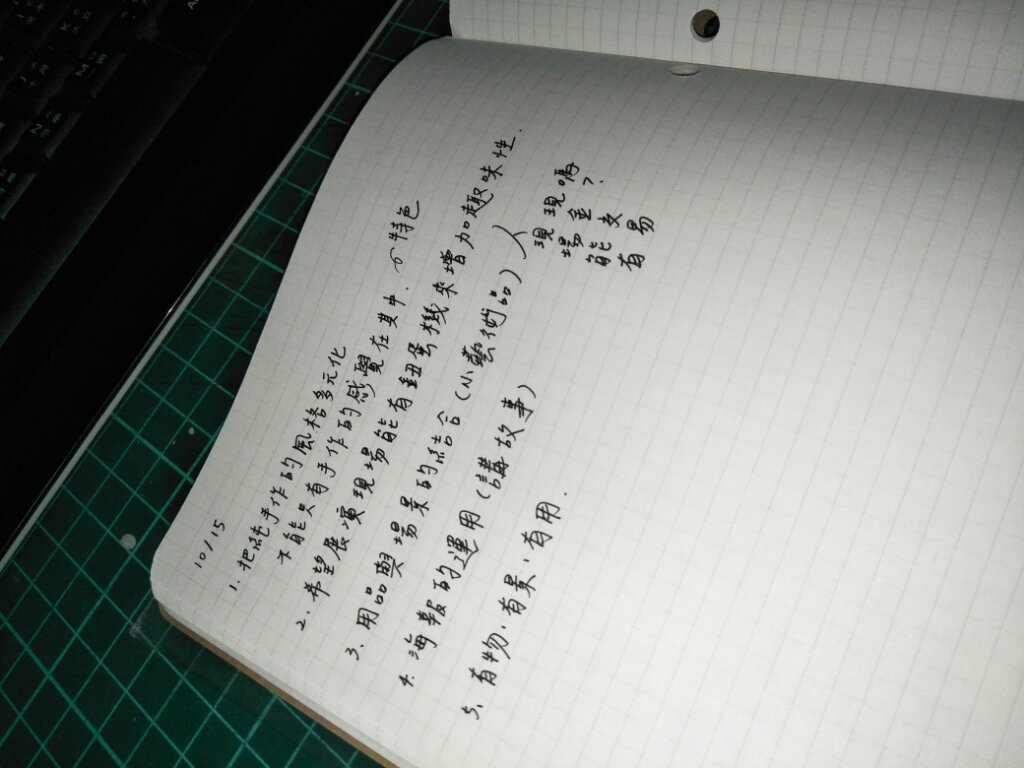 10/15
1. 把純手作的風格多元化
不能只有手作的感覺在其中. 特色
2. 希望展演現場能有鈕蛋機來增加趣味性.
3. 用品與場景的結合(小藝術品)人
現場能有
現金交易
嗎?
4. 海報的運用(講故事)
5. 有物.有景.有用.